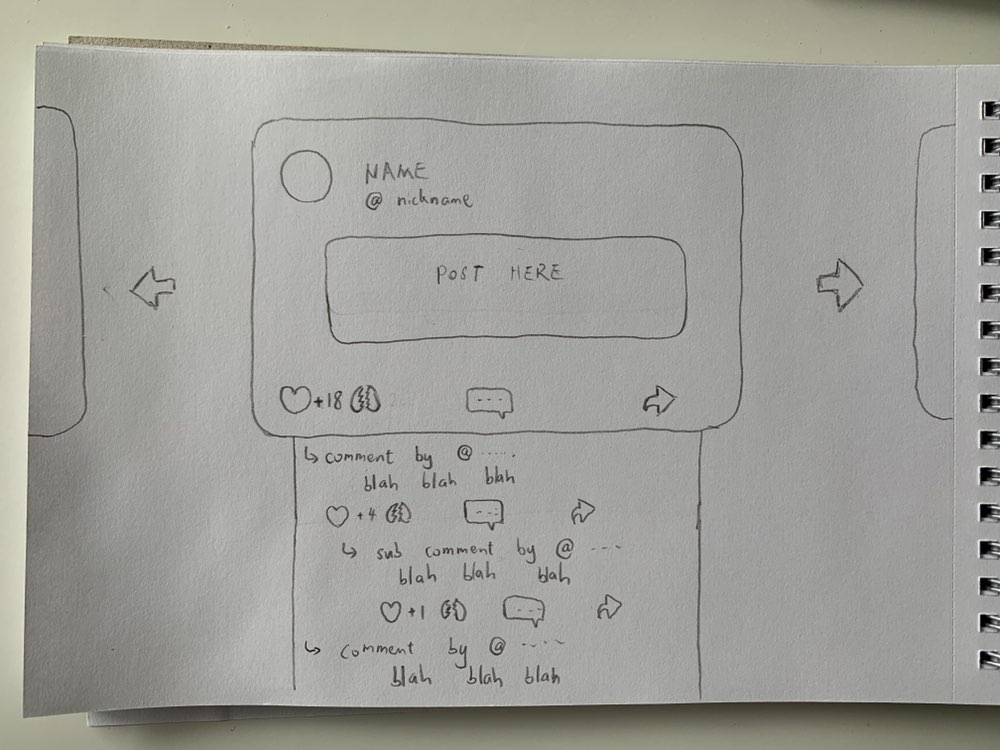 NAME
@ nickname
POST HERE
+18
comment by @ .....
blah blah blah
+4
sub comment by @ ---
blah blah blah
+1
comment by @ ----
blah blah blah